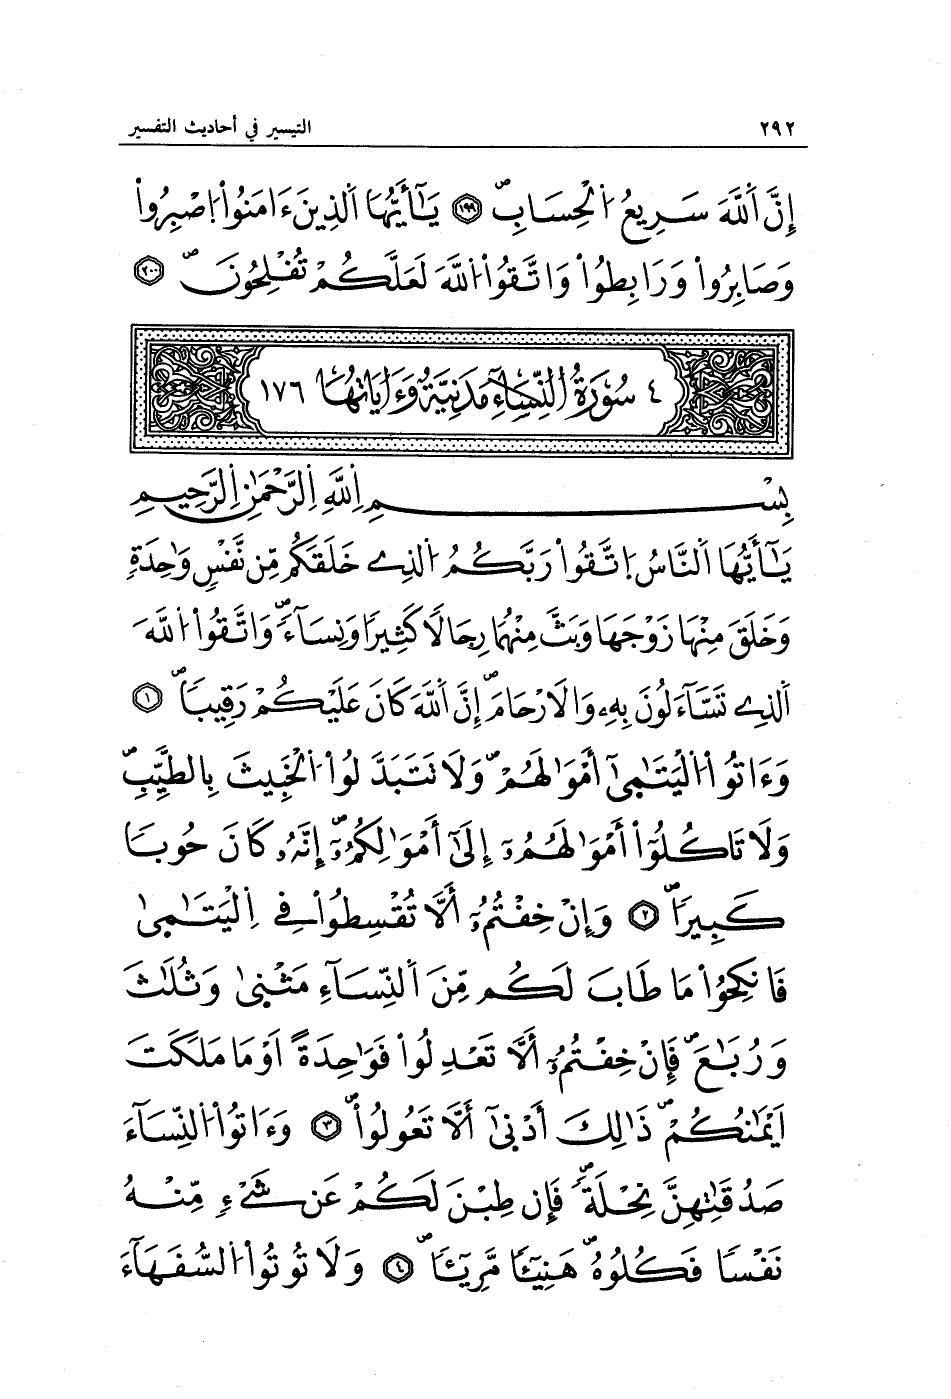 ٢٩٢ التيسير في أحاديث التفسير
إِنَّ اَللَّهَ سَرِيعُ اُلْحِسَابِۖ ١٩٩ يَٰٓأَيُّهَا اَلذِينَ ءَامَنُواْ اُصْبِرُواْ
وَصَابِرُواْ وَرَابِطُواْ وَاتَّقُواْ اُللَّهَ لَعَلَّكُمْ تُفْلِحُونَۖ ٢٠٠
٤ سُورَةُ اُلنِّسَآءِ مَدَنِيَّةٌ وَءَايَاتُهَا ١٧٦
بِسْمِ اِللَّهِ اِلرَّحْمَٰنِ اِلرَّحِيمِ
يَٰٓأَيُّهَا اَلنَّاسُ اُتَّقُواْ رَبَّكُمُ اُلذِے خَلَقَكُم مِّن نَّفْسٍ وَٰحِدَةٍ
وَخَلَقَ مِنْهَا زَوْجَهَا وَبَثَّ مِنْهُمَا رِجَالًا كَثِيرًا وَنِسَآءًۖ وَاتَّقُواْ اُللَّهَ
اَلذِے تَسَّآءَلُونَ بِهِۦ وَالَارْحَامَۖ إِنَّ اَللَّهَ كَانَ عَلَيْكُمْ رَقِيبًاۖ ١
وَءَاتُواْ اُلْيَتَٰمَىٰٓ أَمْوَٰلَهُمْۖ وَلَا تَتَبَدَّلُواْ اُلْخَبِيثَ بِالطَّيِّبِۖ
وَلَا تَاكُلُوٓاْ أَمْوَٰلَهُمُۥٓ إِلَىٰٓ أَمْوَٰلِكُمُۥٓۖ إِنَّهُۥ كَانَ حُوبًا
كَبِيرًاۖ ٢ وَإِنْ خِفْتُمُۥٓ أَلَّا تُقْسِطُواْ فِے اِلْيَتَٰمَىٰ
فَانكِحُواْ مَا طَابَ لَكُم مِّنَ اَلنِّسَآءِ مَثْنَىٰ وَثُلَٰثَ
وَرُبَٰعَۖ فَإِنْ خِفْتُمُۥٓ أَلَّا تَعْدِلُواْ فَوَٰحِدَةً اَوْ مَا مَلَكَتَ
اَيْمَٰنُكُمْۖ ذَٰلِكَ أَدْنَىٰٓ أَلَّا تَعُولُواْۖ ٣ وَءَاتُواْ اُلنِّسَآءَ
صَدُقَٰتِهِنَّ نِحْلَةًۖ فَإِن طِبْنَ لَكُمْ عَن شَےْءٍ مِّنْهُ
نَفْسًا فَكُلُوهُۖ هَنِيٓـًٔا مَّرِيٓـًٔاۖ ٤ وَلَا تُوتُواْ اُلسُّفَهَآءَ